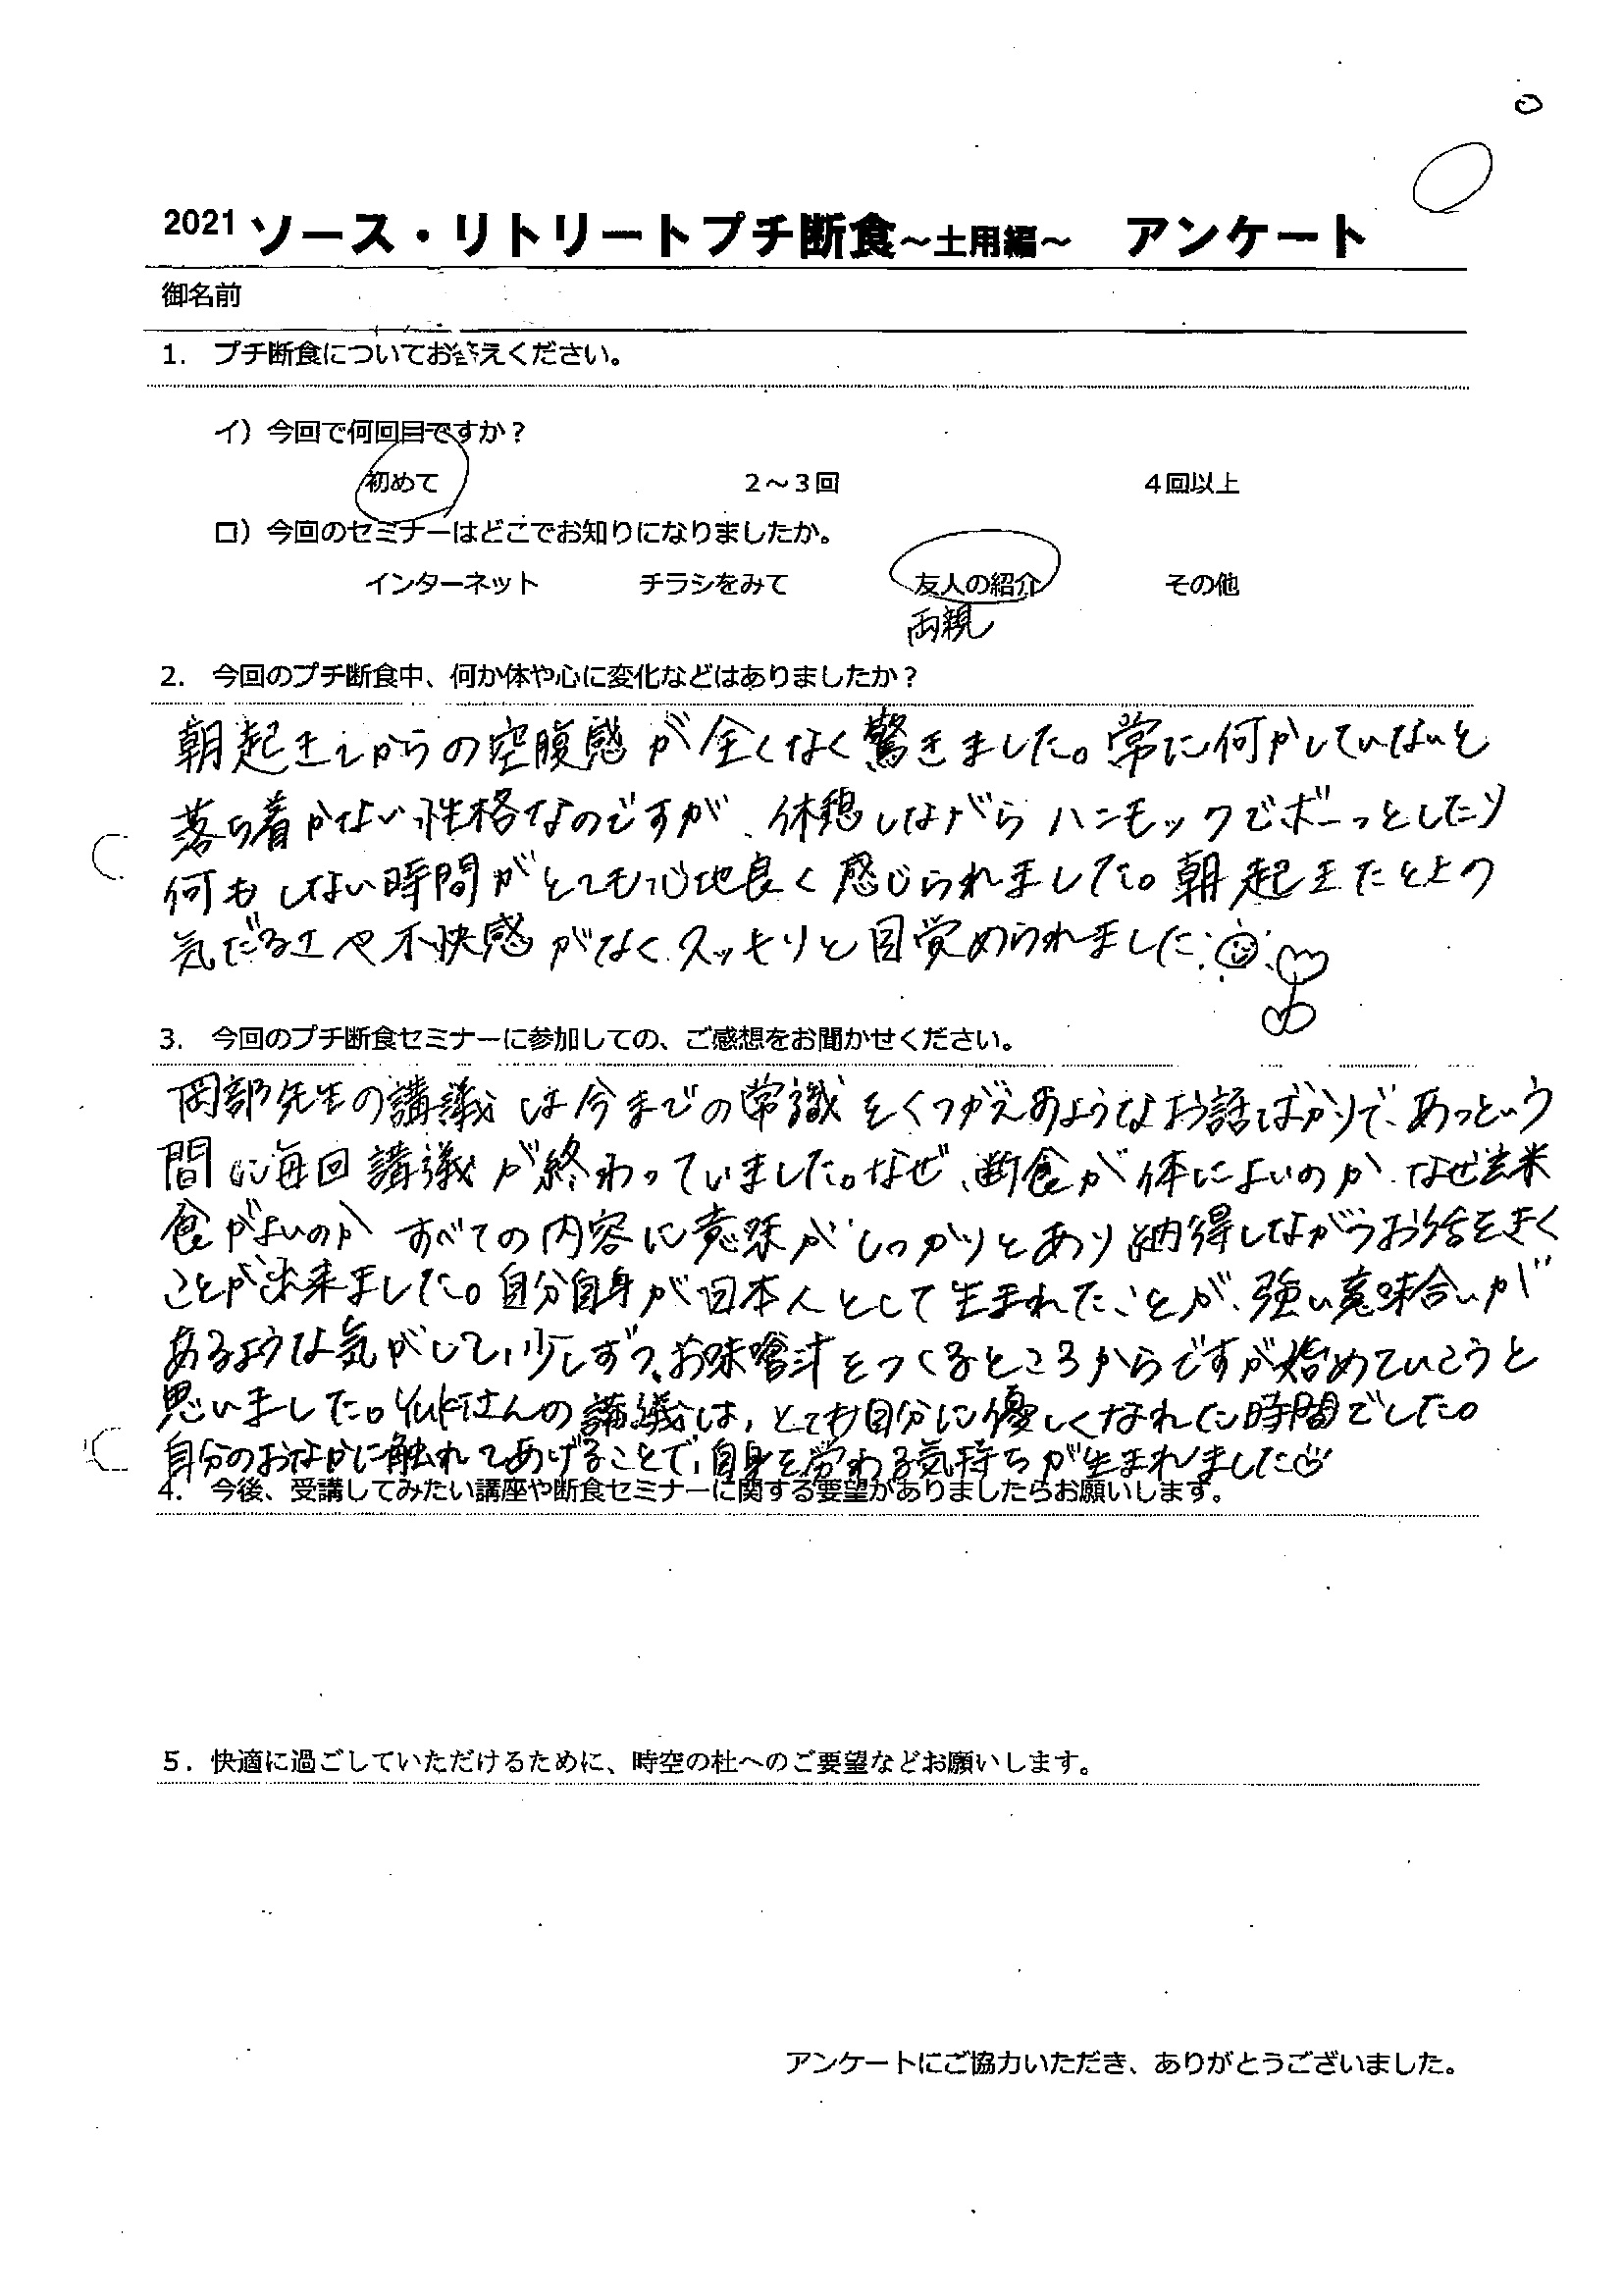 2021 ソース・リトリートプチ断食～土用編～　アンケート
御名前
1.　プチ断食についてお答えください。
イ）今回で何回目ですか？
初めて　2～3回　4回以上
ロ）今回のセミナーはどこでお知りになりましたか。
インターネット　チラシをみて　友人の紹介　その他
両親
2.　今回のプチ断食中、何か体や心に変化などはありましたか？
朝起きてからの空腹感が全くなく驚きました。常に何かしていないと
落ち着かない性格なのですが、休憩しながらハンモックでボーっとしたり
何もしない時間がとても心地良く感じられました。朝起きたときの
気だるさや不快感がなく、スッキリと目覚められました
3.　今回のプチ断食セミナーに参加しての、ご感想をお聞かせください。
岡部先生の講議は今までの常識をくつがえすようなお話ばかりで、あっという
間に毎回講議が終わっていました。なぜ、断食が体によいのか、なぜ玄米
食がよいのか すべての内容に意味がしっかりとあり納得しながらお話をきく
ことが出来ました。自分自身が日本人として生まれたことが、強い意味合いが
あるような気がして、少しずつ、お味噌汁をつくるところからですが始めていこうと
思いました。Yukiさんの講議は、とても自分に優しくなれた時間でした。
自分のおなかに触れてあげることで、自身を労わる気持ちが生まれました
4.　今後、受講してみたい講座や断食セミナーに関する要望がありましたらお願いします。
5．快適に過ごしていただけるために、時空の杜へのご要望などお願いします。
アンケートにご協力いただき、ありがとうございました。